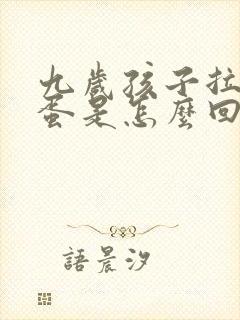 九歲孩子拉
蛋是怎麼回
語晨汐